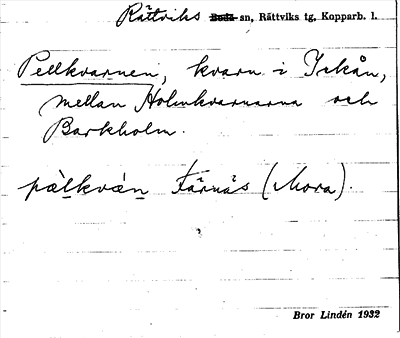 Rättviks sn, Rättviks tg, Kopparb. l.
Pellkvarnen, kvarn i Ickån,
mellan Holmkvarnarna och
Barkholm.
pàlkván Färnäs (Mora).
Bror Lindén 1932